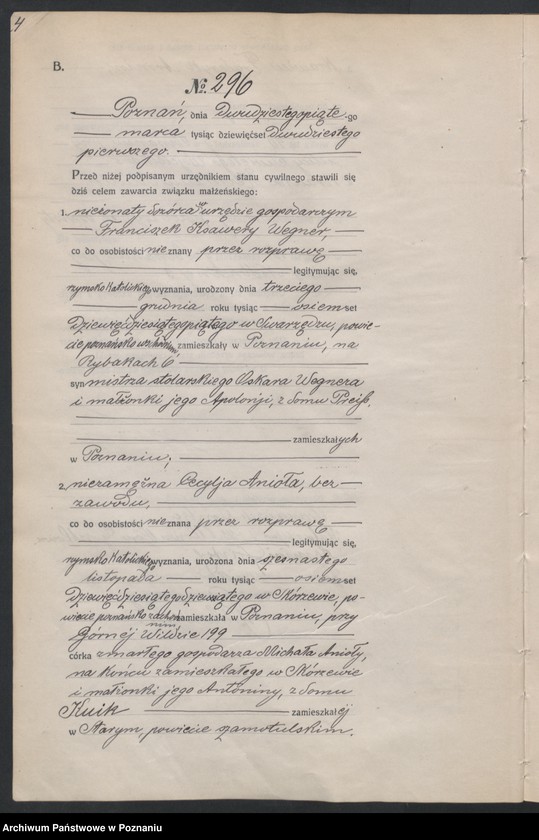 4
B.
№ 296
Poznań, dnia Dwudziestegopiąte-go
marca tysiąc dziewięćset Dwudziestego
pierwszego.
Przed niżej podpisanym urzędnikiem stanu cywilnego stawili się
dziś celem zawarcia związku małżeńskiego:
1. nieżonaty dozórca w urzędzie gospodarczym
Franciszek Ksawery Wegner,
co do osobistości nie znany przez rozprawę
legitymując się,
rzymsko katolickiego wyznania, urodzony dnia trzeciego
grudnia roku tysiąc osiemset
Dziewięćdziesiątegopiątego w Swarzędzu, powie-
cie poznańsko wschodnim, zamieszkały w Poznaniu, na
Rybakach 6
syn mistrza stolarskiego Oskara Wegnera
i małżonki jego Apolonji, z domu Preiß,
zamieszkałych
w Poznaniu;
2. niezamężna Cecylja Anioła, bez
zawodu,
co do osobistości nieznana przez rozprawę
legitymując się,
rzymsko katolickiego wyznania, urodzona dnia szesnastego
listopada roku tysiąc osiemset
Dziewięćdziesiątegodziewiątego w Skórzewie, po-
wiecie poznańsko zachodnim zamieszkała w Poznaniu, przy
Górnej Wildzie 199
córka zmarłego gospodarza Michała Anioły,
na końcu zamieszkałego w Skórzewie
i małżonki jego Antoniny, z domu
Kuik zamieszkałej
w Starym, powiecie szamotulskim.
Archiwum Państwowe w Poznaniu